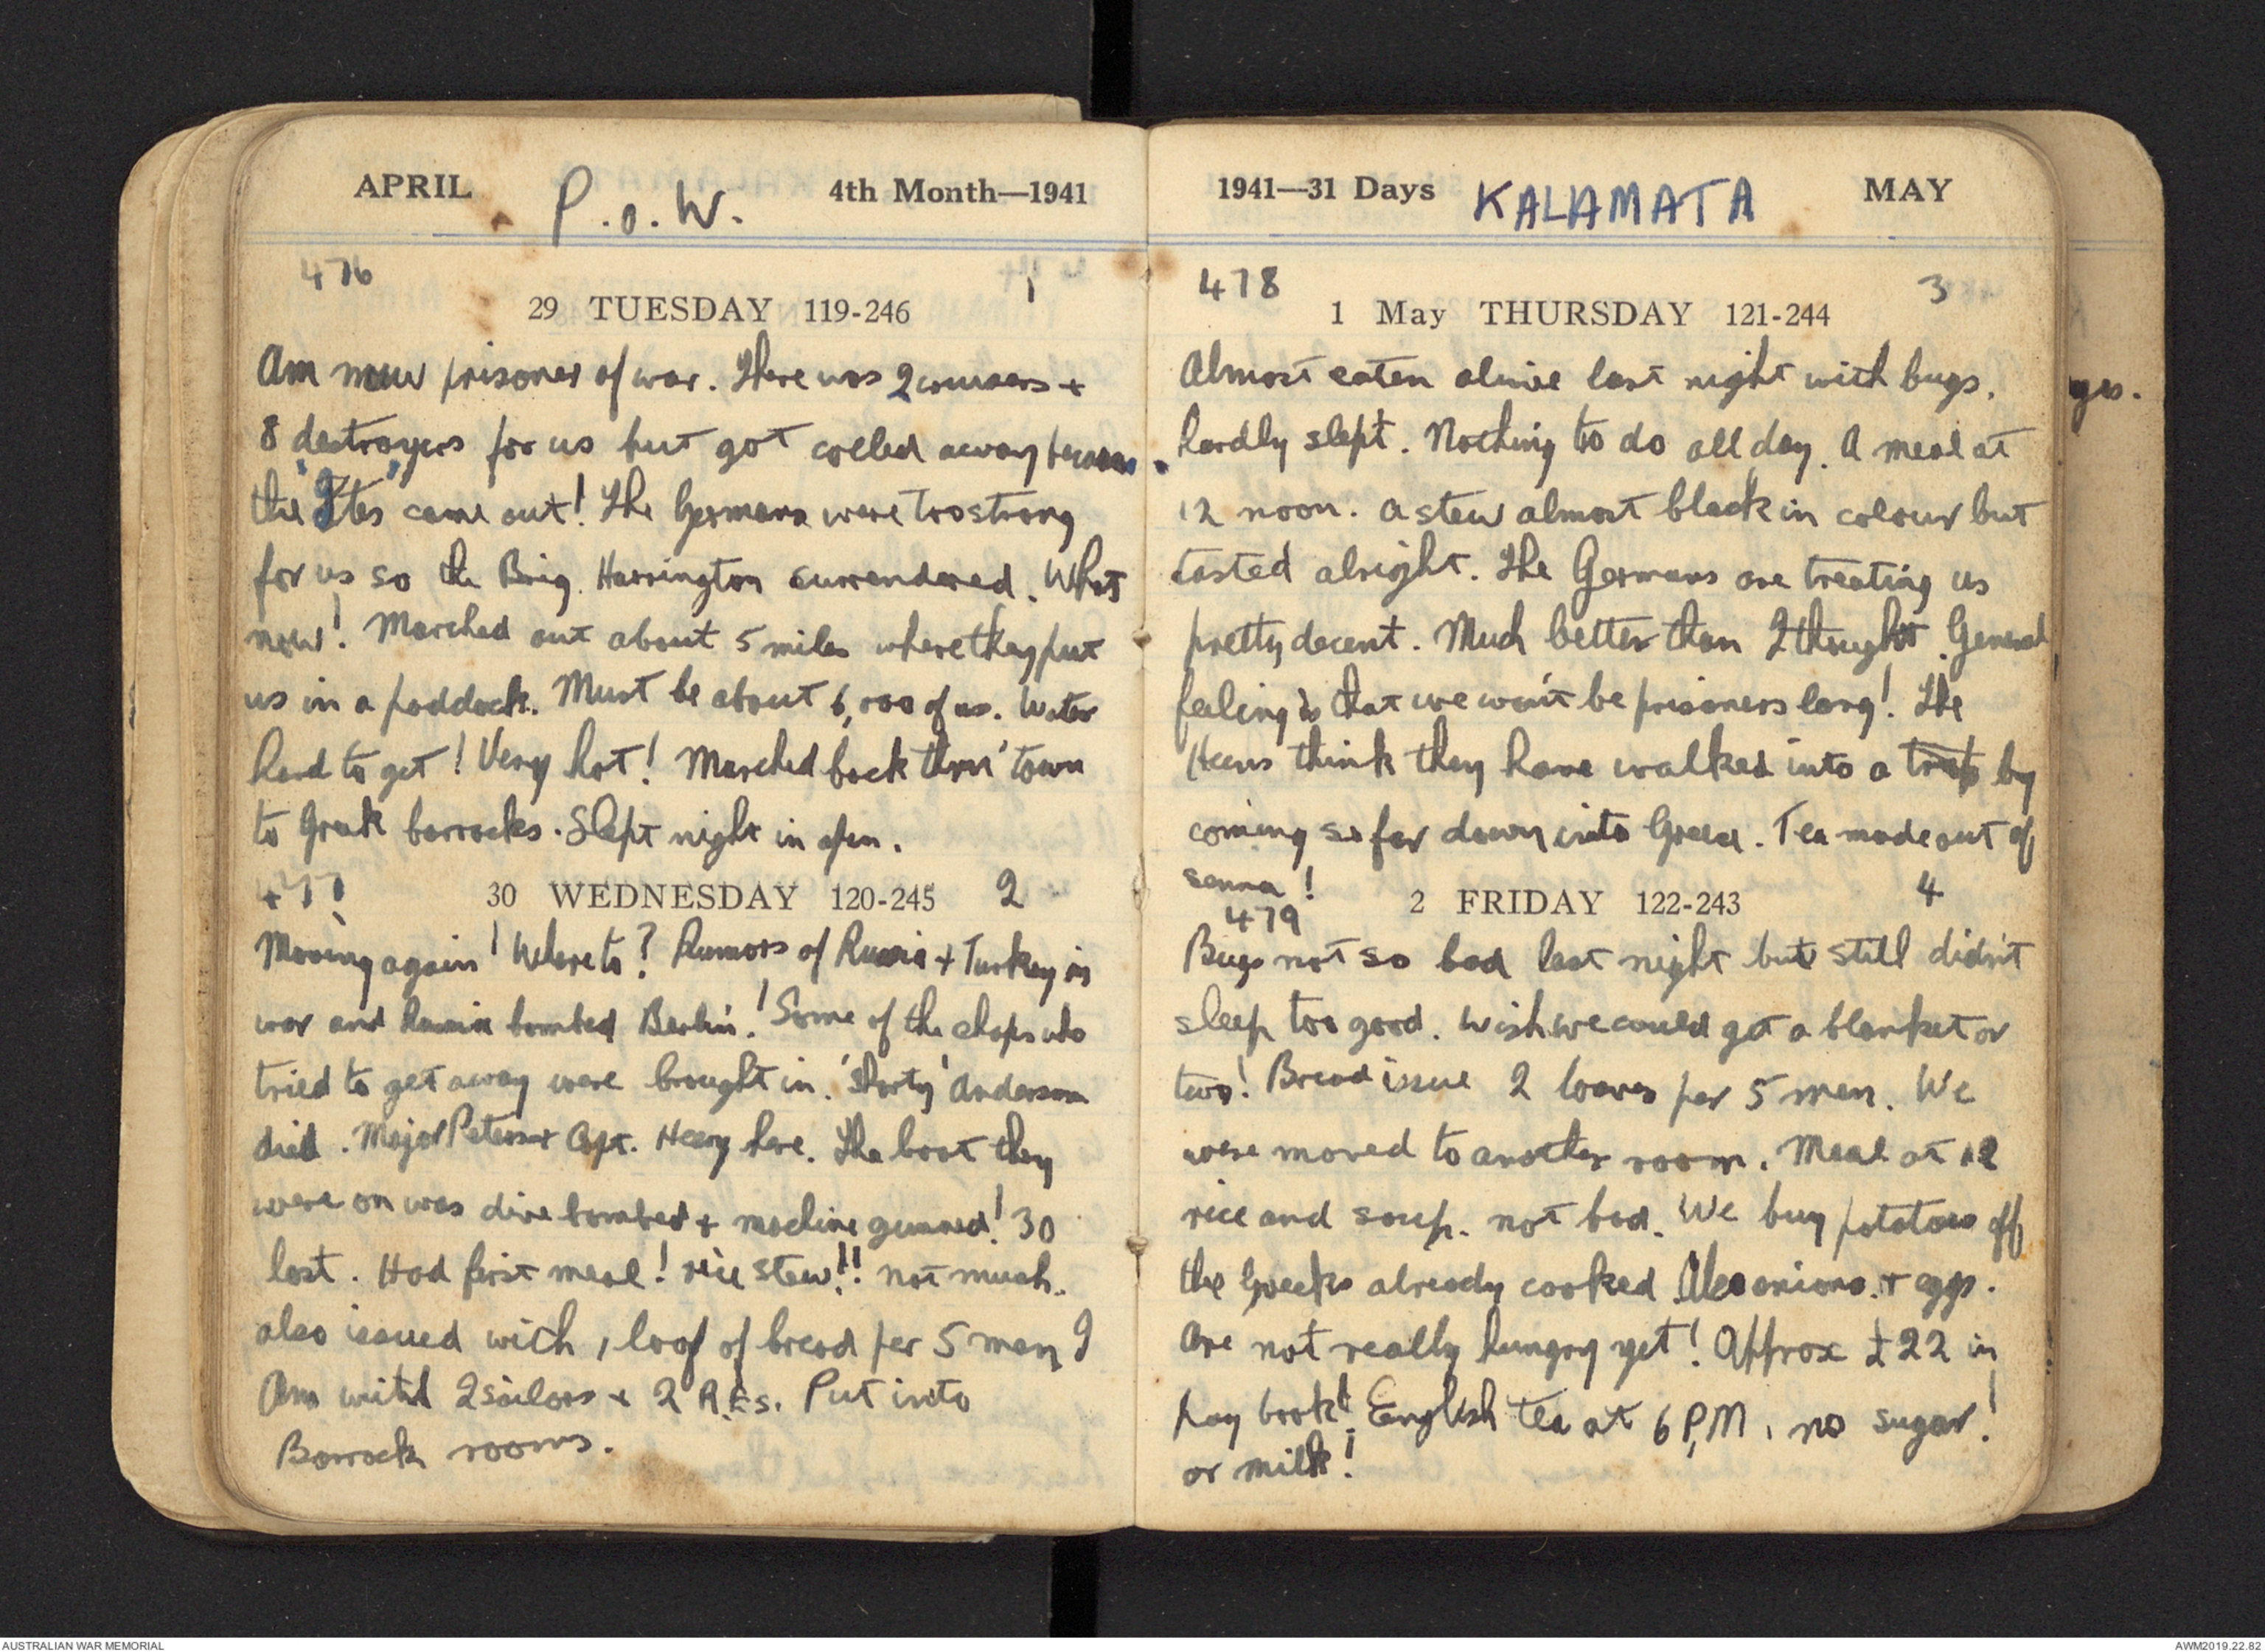 APRIL P.O.W. 4th Month—1941
476 1
29 TUESDAY 119-246
Am now prisoner of war. There was 2 cruisers +
8 destroyers for us but got called away because
the "Ites" came out! The Germans were too strong
for us so the Brig. Harrington surrendered. What
now! Marched out about 5 miles where they put
us in a paddock. Must be about 6,000 of us. Water
hard to get! Very hot! Marched back thru' town
to Greek barracks. Slept night in open.
477 30 WEDNESDAY 120-245 2
Moving again! Where to? Rumors of Russia + Turkey in
war and Russia bombed Berlin! Some of the chaps who
tried to get away were brought in. 'Shorty' Anderson
died. Major Peters + Capt. Heery here. The boat they
were on was dive bombed + machine gunned! 30
lost. Had first meal! rice stew!! not much.
also issued with 1 loaf of bread per 5 men I
Am with 2 sailors + 2 R.E's. Put into
Barrack rooms.
1941—31 Days KALAMATA MAY
478 3
1 May THURSDAY 121-244
Almost eaten alive last night with bugs.
hardly slept. Nothing to do all day. A meal at
12 noon. A stew almost black in colour but
tasted alright. The Germans are treating us
pretty decent. Much better than I thought. General
feeling is that we won't be prisoners long! The
Huns think they have walked into a trap by
coming so far down into Greece. Tea made out of
senna!
2 FRIDAY 122-243 4
479
Bugs not so bad last night but still didn't
sleep too good. Wish we could get a blanket or
two! Bread issue 2 loaves per 5 men. We
were moved to another room. Meal at 12
rice and soup. not bad. We buy potatoes off
the Greeks already cooked. Also onions. + eggs.
Are not really hungry yet! Approx £22 in
Pay book! English tea at 6 P.M. no sugar!
or milk!
yes.
AUSTRALIAN WAR MEMORIAL
AWM2019.22.82